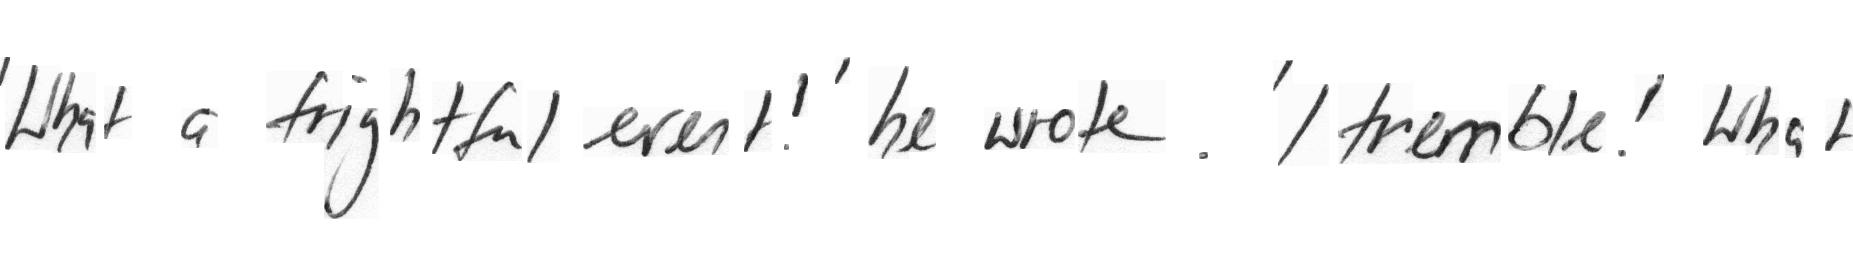 'What a frightful event!' he wrote. 'I tremble! What